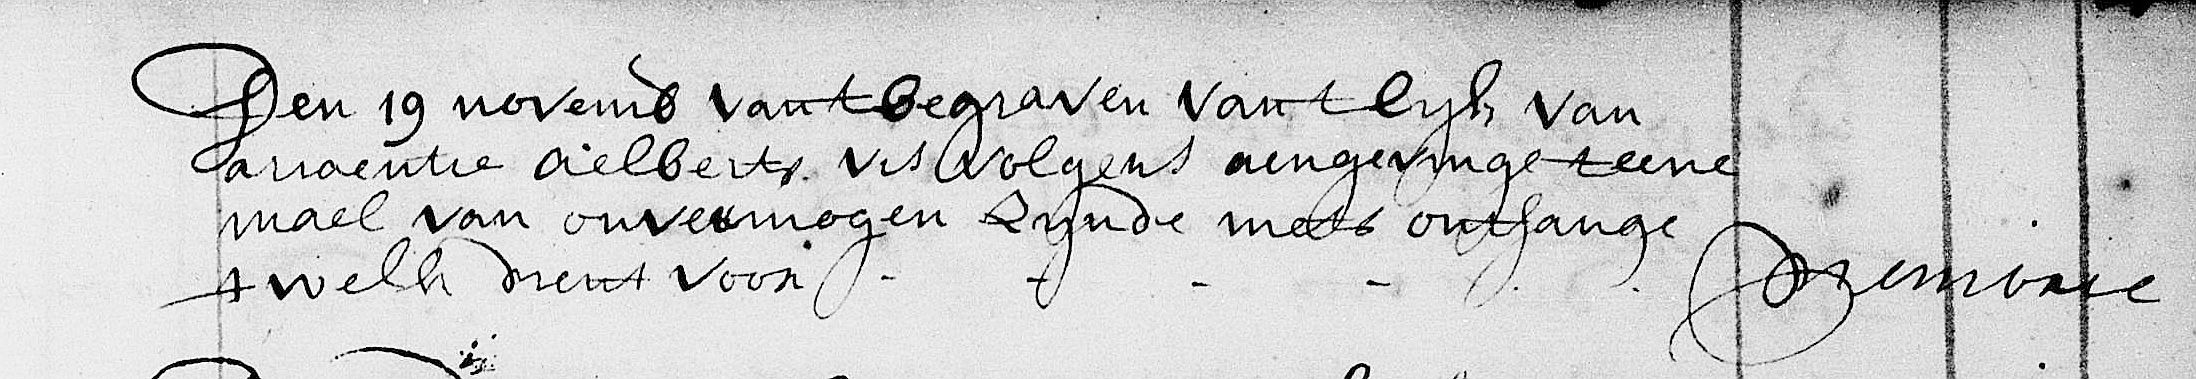 Den 19 novemb vant begraven vant lyk van
arriaentie aelberts vis volgens aengevinge teene
mael van onvermogen zynde niets ontfange
t welk dient voor - - - - memorie